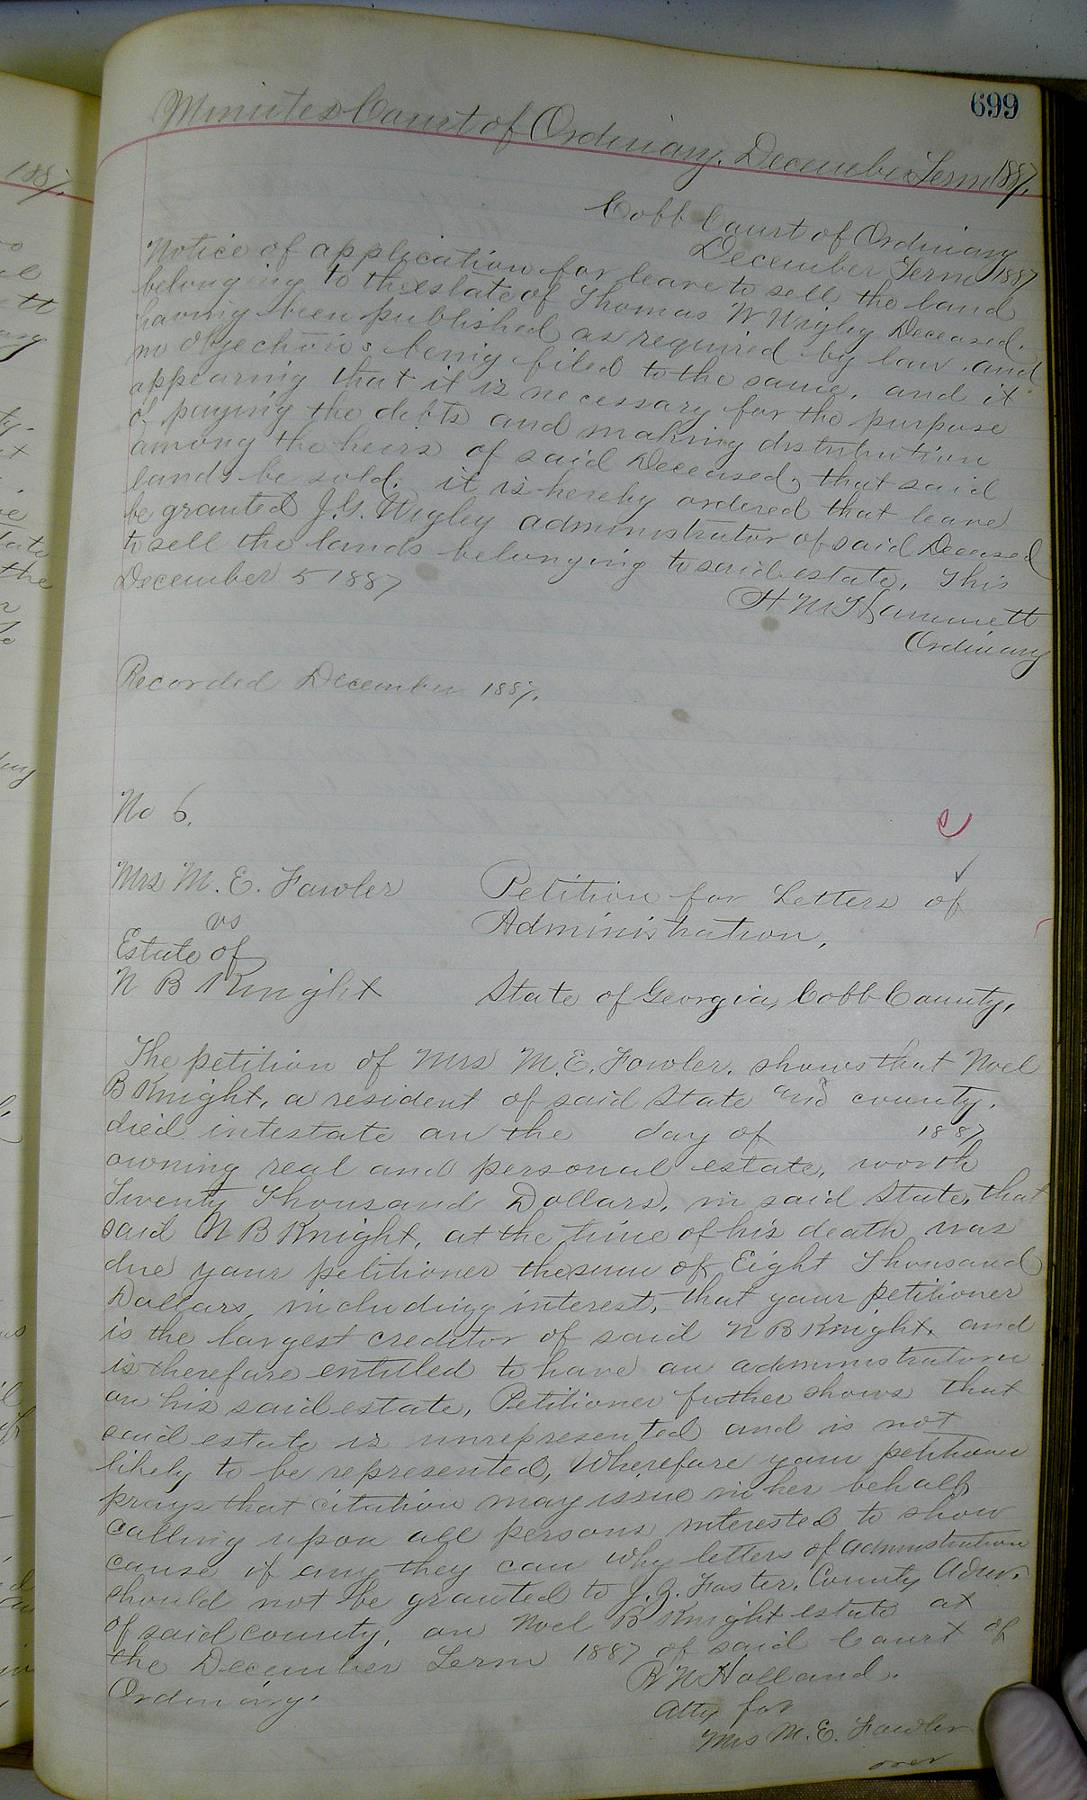 699
Minutes Court of Ordinary, December Term 1887.
Cobb Court of Ordinary
December Term 1887
Notice of application for leave to sell the land
belonging to the estate of Thomas W Wigley Deceased.
having been published as required by law. and
no objections being filed to the same, and it
appearing that it is necessary for the purpose
of paying the debts and making distribution
among the heirs of said Deceased, that said
lands be sold. it is hereby ordered that leave
be granted J.G. Wigley administrator of said Deceased
to sell the lands belonging to said estate. This
December 5 1887
H M Hammett
Ordinary
Recorded December 1887.
No 6.
Mrs M. E. Fowler
vs
Estate of
N B Knight
Petition for Letters of
Administration,
State of Georgia, Cobb County,
The petition of Mrs M. E. Fowler. shows that Noel
B Knight, a resident of said State and county.
died intestate on the day of 1887
owning real and personal estate, worth
Twenty Thousand Dollars, in said State, that
said N B Knight, at the time of his death was
due your petitioner the sum of Eight Thousand
Dollars, including interest, that your petitioner
is the largest creditor of said N B Knight, and
is therefore entitled to have an administration
on his said estate, Petitioner futher shows that
said estate is unrepresented and is not
likely to be represented, Wherefore your petitioner
prays that citation may issue in her behalf
calling upon all persons interested to show
cause if any they can why letters of administration
should not be granted to J. G. Foster, County Admr.
of said county, on Noel B Knight estate at
the December Term 1887 of said Court of
Ordinary.
R N Holland.
Atty for
Mrs M. E. Fowler
over